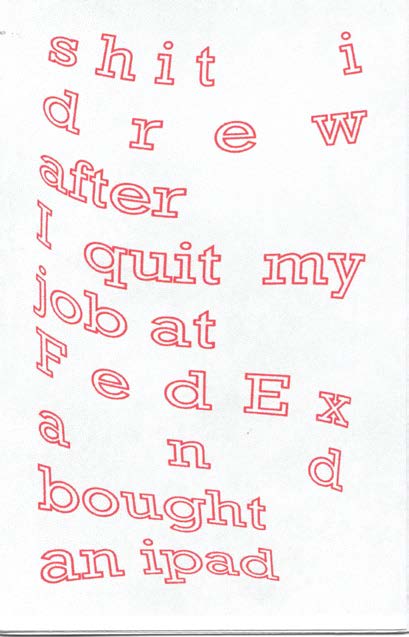 shit i
drew
after
I quit my
job at
FedEx
and
bought
an ipad